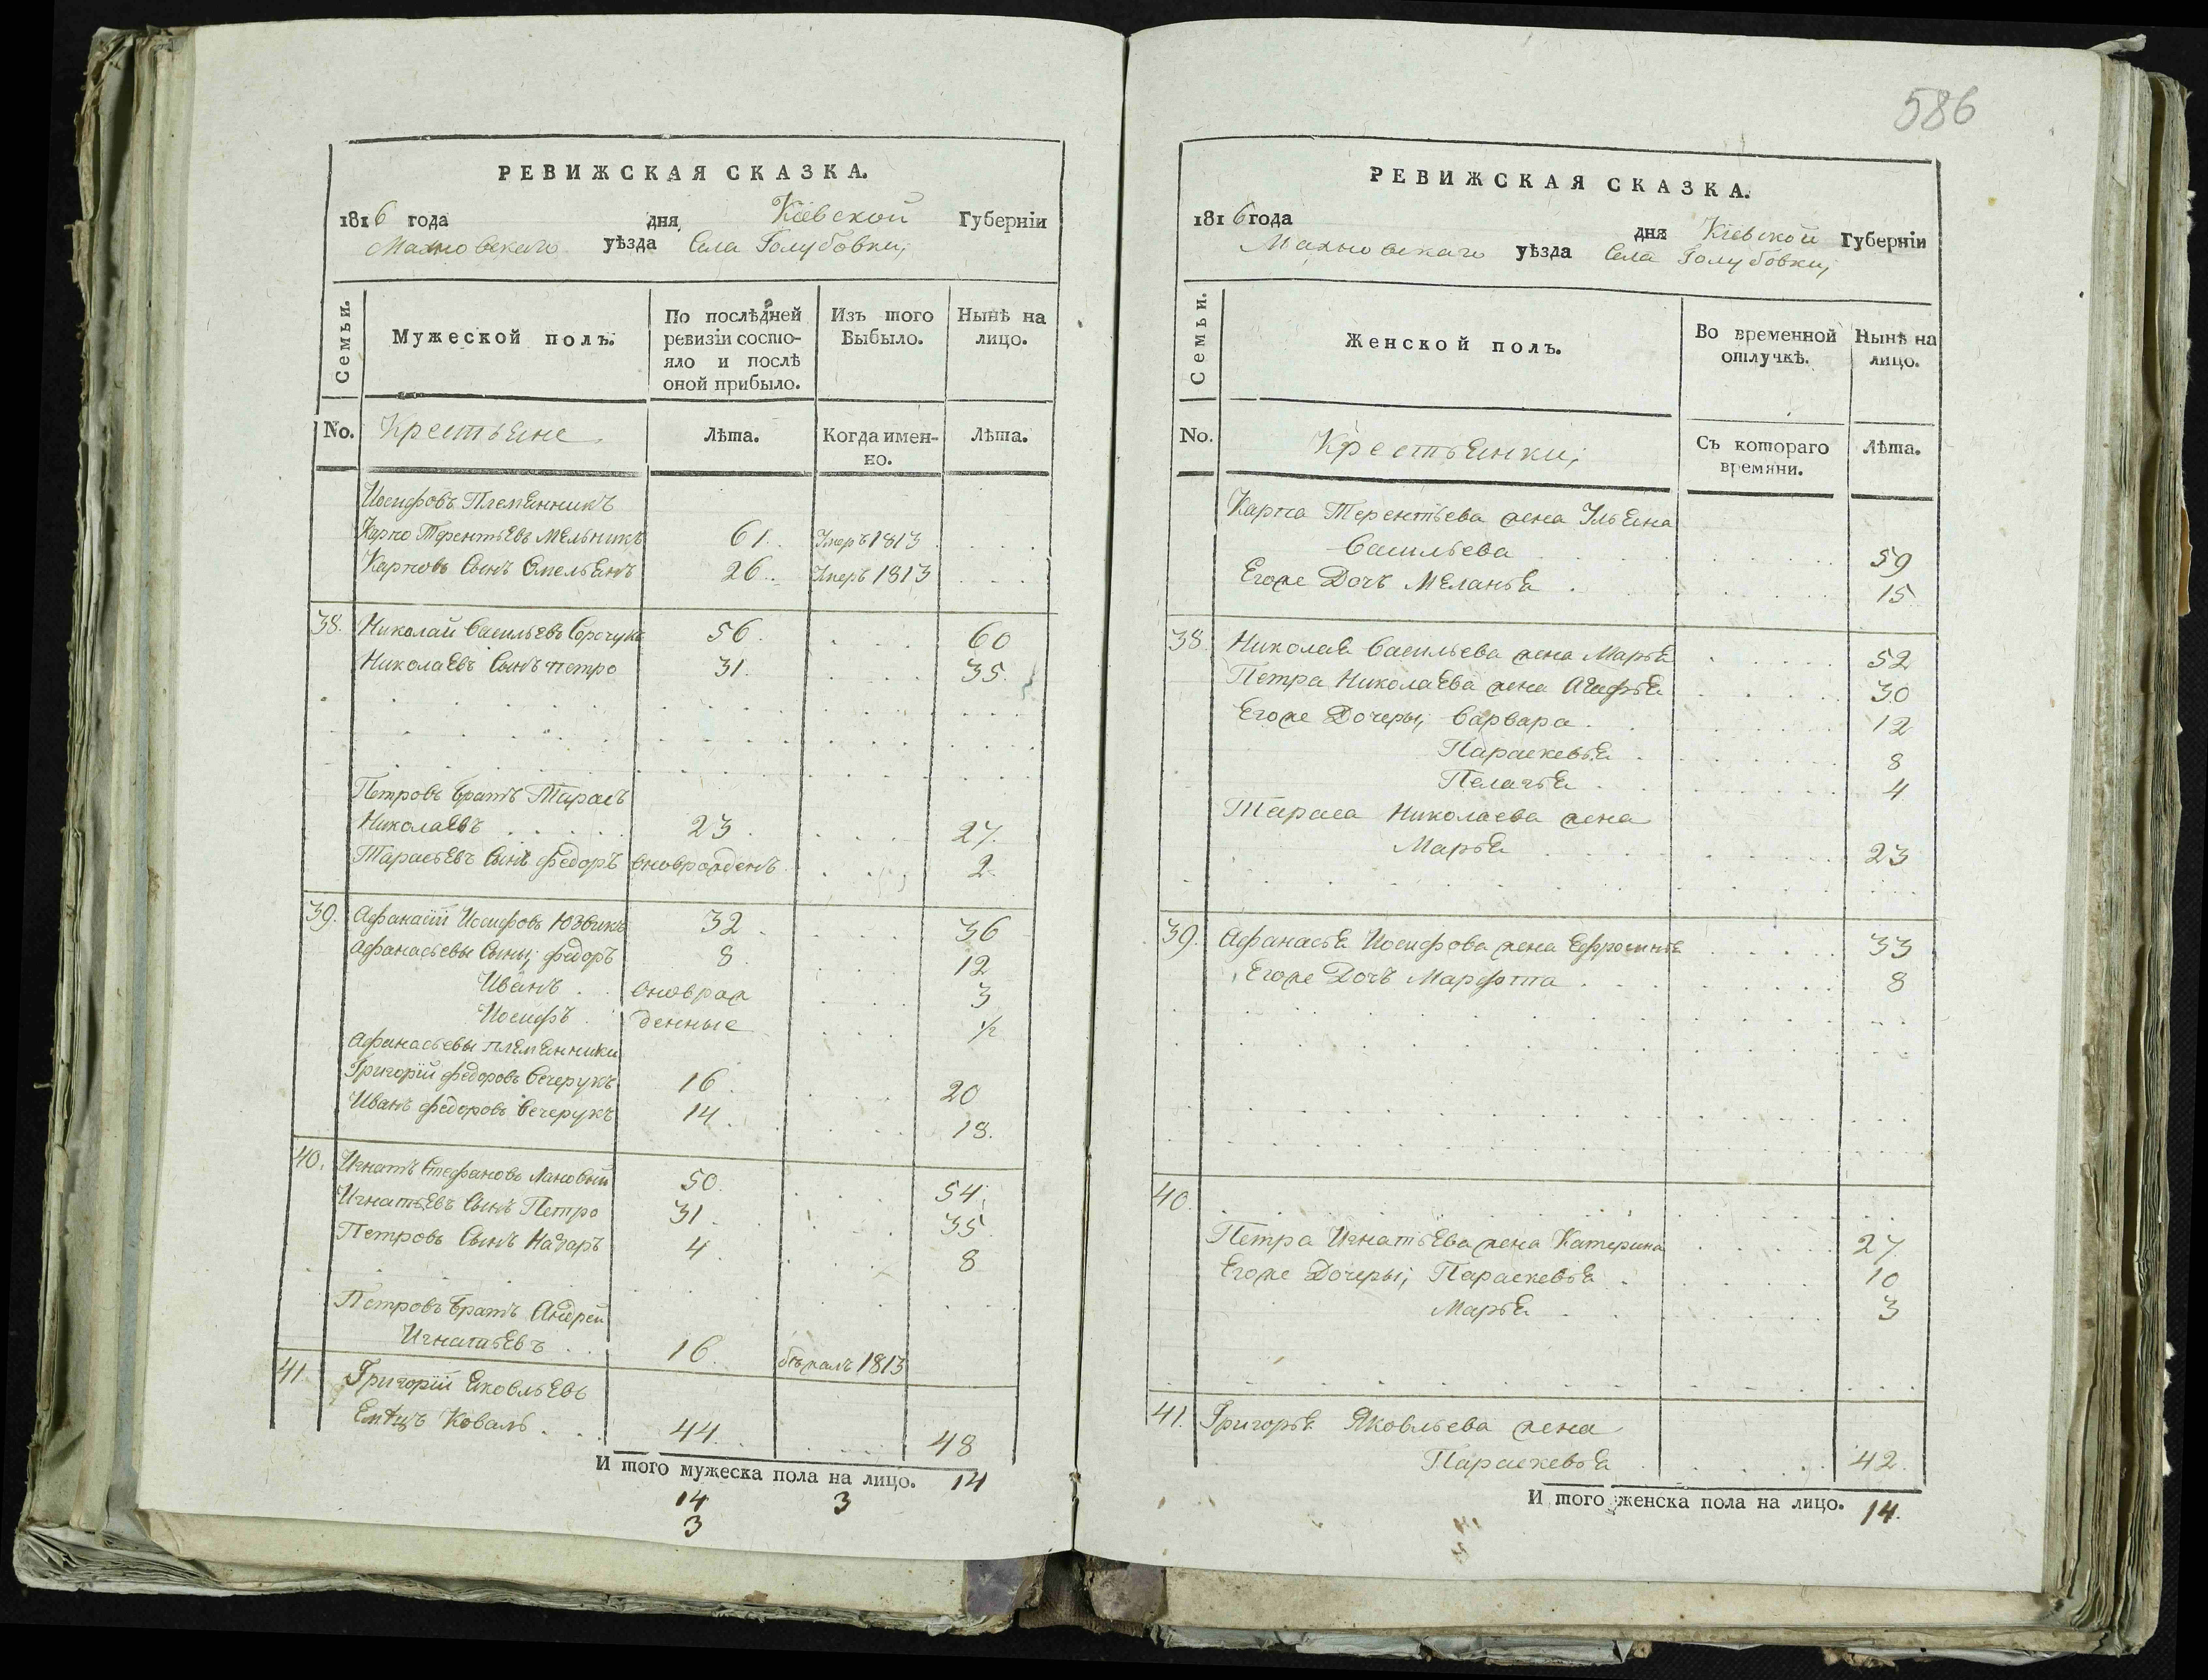 586
РЕВИЖСКАЯ СКАЗКА.
1816 года дня Кіевской Губерніи
Махновскаго уѣзда Села Голубовки,
Семьи.
Мужеской полъ.
По послѣдней ревизіи состояло и послѣ оной прибыло.
Изъ того Выбыло.
Нынѣ на лицо.
No. Крестьяне Лѣта. Когда именно. Лѣта.
Иосифовъ Племянникъ
Карпо Терентьевъ Мельникъ 61. Умеръ 1813
Карповъ Сынъ Омельянъ 26. Умеръ 1813
38. Николай Васильевъ 56. 60
Николаевъ Сынъ петро 31. 35.
Петровъ братъ Тарасъ
Николаевъ 23. 27.
Тарасьевъ Сынъ федоръ вновърожденъ 2.
39. Афанасій Иосифовъ Юзвикъ 32 36
Афанасьевы Сыны; федоръ 8. 12
Иванъ вноврож 3
Иосифъ денные 1/2
Афанасьевы племянники
Григорій федоровъ Вечерукъ 16. 20
Иванъ федоровъ вечерукъ 14. 18.
40. Игнатъ Стефановъ Лановый 50. 54.
Игнатьевъ Сынъ Петро 31. 35.
Петровъ Сынъ Назаръ 4. 8
Петровъ братъ Андрей
Игнатьевъ 16. бѣжалъ 1813
41. Григорій Яковльевъ
Коваль 44. 48
И того мужеска пола на лицо. 14
14 3
3
РЕВИЖСКАЯ СКАЗКА.
1816 года дня Кіевской Губерніи
Махновскаго уѣзда Села Голубовки,
Семьи.
Женской полъ.
Во временной отлучкѣ.
Нынѣ на лицо.
No. Крестьянки, Съ котораго времяни. Лѣта.
Карпа Терентьева жена Ульяна
Васильева 59
Егоже Дочъ Меланья 15
38. Николая Васильева жена Марья 52
Петра Николаева жена Агафья 30
Егоже Дочеры; Варвара 12
Параскевья 8
Пелагья 4
Тараса Николаева жена
Марья 23
39. Афанасья Иосифова жена Ефросинья 33
Егоже Дочъ Марфта 8
40.
Петра Игнатьева жена Катерина 27
Егоже Дочеры; Параскевья 10
Марья 3
41. Григорья Яковльева жена
Параскевья 42.
И того женска пола на лицо. 14.